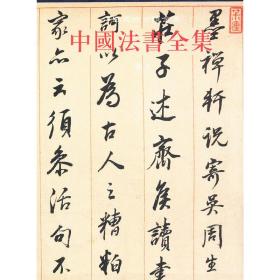 中國法書全集
墨禪軒说寄吳周生
莊子述齊侯讀書
訶以為古人之糟粕
家亦云須參活句不